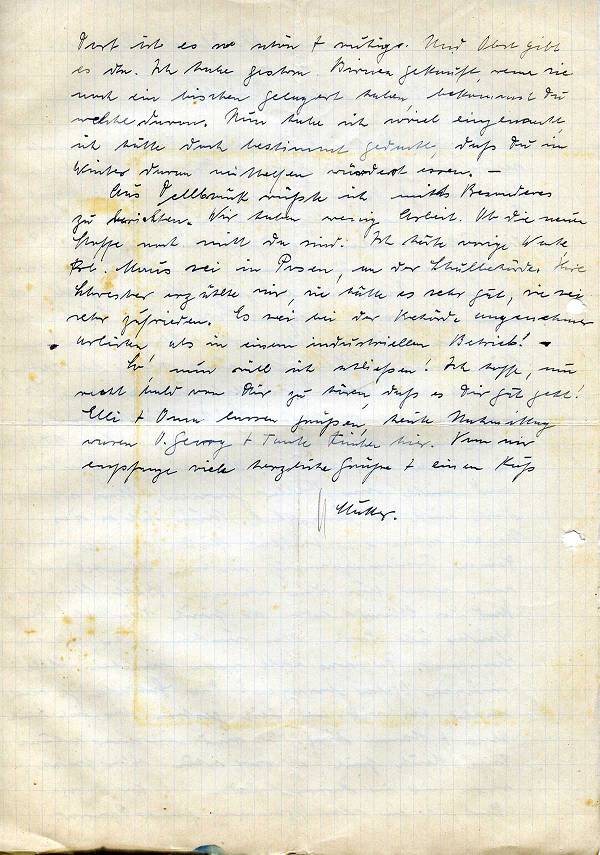 Dort ist es so schön + ruhig. Und Obst gibt
es da. Ich habe gestern Birnen gekauft, wenn sie
noch ein bischen gelagert haben, bekommst Du
welche davon. Nun habe ich soviel eingemacht,
ich hätte doch bestimmt gedacht, daß Du im
Winter davon mithelfen würdest essen. –
Aus Dellbrück wüßte ich nichts Besonderes
zu berichten. Wir haben wenig Arbeit. Ob die neuen
Stoffe noch nicht da sind. Ich hörte vorige Woche
Frl. Maus sei in Posen, an der Schulbehörde. Ihre
Schwester erzählte mir, sie hätte es sehr gut, sie sei
sehr zufrieden. Es sei bei der Behörde angenehmer
arbeiten, als in einem industriellen Betrieb! –
So, nun will ich schließen! Ich hoffe, nun
recht bald von Dir zu hören, daß es Dir gut geht!
Elli + Oma lassen grüßen, heute Nachmittag
waren O. Georg + Tante hier. Von mir
empfange viele herzliche Grüße + einen Kuß
Mutter.